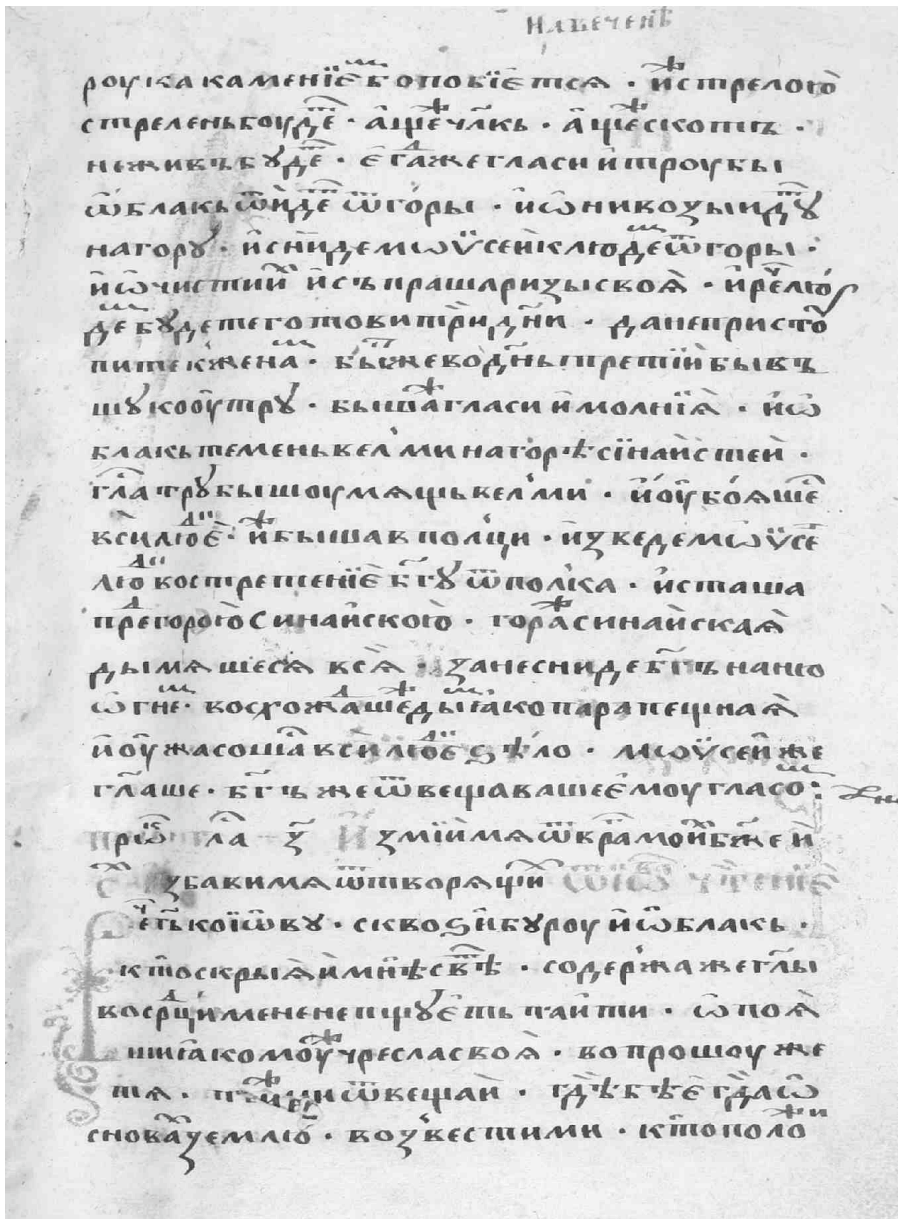 на вечени
роука камениемь бо побїется · или стрелою
стрелень боудет · аще члкъ · аще скотъ ·
не живъ бꙋдет · егда же гласи и троубы
ѿблакъ ѿидет ѿ горы · и ѡни козыидꙋт
на горꙋ · и сниде мѡѵсеи к людем ѿ горы ·
и ѡчисти их и съпраша ризы своя · и рече лю
дем бꙋдете готови три дни · да не пристꙋ
пите к женам · бысть же во днь третїи бывъ
шꙋ ко оутрꙋ · быша же гласи и молнїя · и ѡ
блакъ теменъ велми на горѣ сїнаистеи ·
глас трꙋбы шоумящь велми · и оубояшес
вси людїе иже быша в полци · изведе мѡѵсе
люди во стретение бгꙋ ѿ полка · и сташа
пред горою синаискою · гора же синаиская
дымяшеся вся · зане сниде бгъ на ню
ѡгнем · восхождаше же дым ꙗко пара пещная
и оужасошас вси людїе ѕѣло · мѡѵсеи же
глаше · бгъ же ѿвещаваше емоу гласом ·
прѡк гла з изми мя ѿ враг моих бже и
ст избави мя ѿ творящих ѿ иѡва чтение
Рече гь к оїѡвꙋ · сквоѕѣ бурю и ѡблакъ ·
кто скрыяи мнѣ свѣт · содержа же глы
во срдци мене не пщꙋет ть таити · ѡпоя
ши ꙗко моужь чресла своя · вопрошоу же
тя · ты же ми ѿвещаи · гдѣ бѣ егда ѡ
сновах землю · возвести ми · кто положи